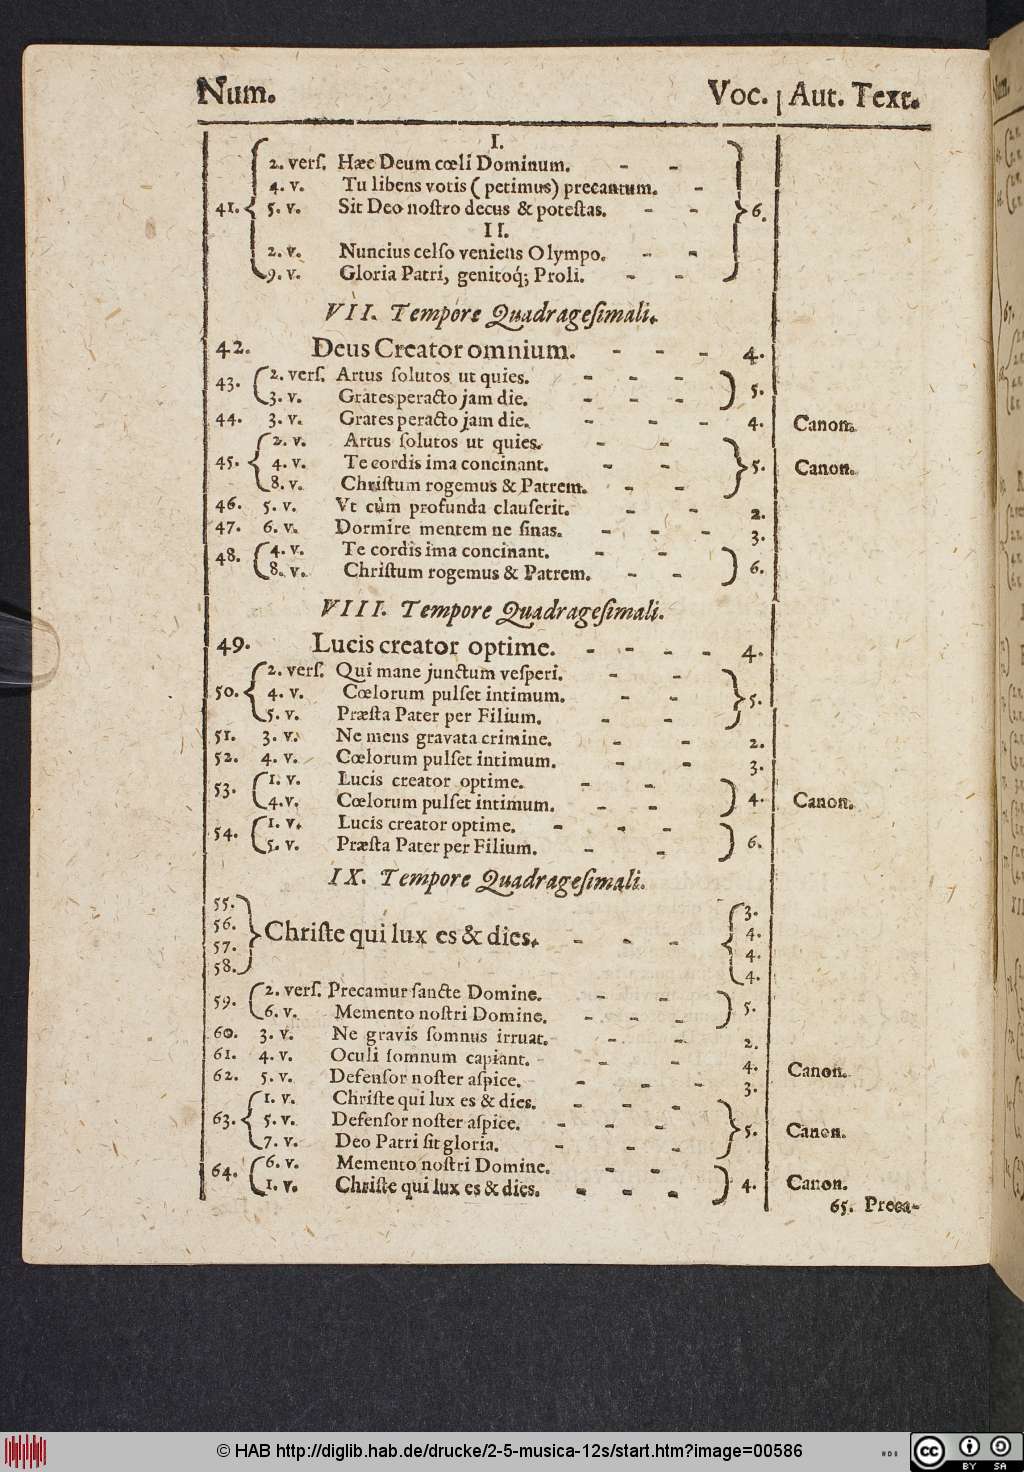 Num. Voc. Aut. Text.
I.
2. verſ. Hæc Deum cœli Dominum. - -
4. v. Tu libens votis ( petimus) precantum. -
41. 5. v. Sit Deo noſtro decus & poteſtas. - - 6.
II.
2. v. Nuncius celſo veniens Olympo. - -
9. v. Gloria Patri, genitoq́; Proli. - -
VII. Tempore Quadrageſimali.
42. Deus Creator omnium. - - - 4.
2. verſ. Artus ſolutos ut quies. - - -
43. 5.
3. v. Grates peracto jam die. - - -
44. 3. v. Grates peracto jam die. - - - 4. Canon.
2. v. Artus ſolutos ut quies. - -
45. 4. v. Te cordis ima concinant. - - 5. Canon.
8. v. Chriſtum rogemus & Patrem. - -
46. 5. v. Vt cùm profunda clauſerit. - - 2.
47. 6. v. Dormire mentem ne ſinas. - - - 3.
4. v. Te cordis ima concinant. - -
48. 6.
8. v. Chriſtum rogemus & Patrem. - -
VIII. Tempore Quadrageſimali.
49. Lucis creator optime. - - - - 4.
2. verſ. Qui mane junctum veſperi. - -
50. 4. v. Cœlorum pulſet intimum. - - 5.
5. v. Præſta Pater per Filium. - -
51. 3. v. Ne mens gravata crimine. - - 2.
52. 4. v. Cœlorum pulſet intimum. - - 3.
1. v. Lucis creator optime. - -
53. 4. Canon.
4. v. Cœlorum pulſet intimum. - -
1. v. Lucis creator optime. - - -
54. 6.
5. v. Præſta Pater per Filium. - -
IX. Tempore Quadrageſimali.
55. 3.
56. 4.
Chriſte qui lux es & dies. - - -
57. 4.
58. 4.
2. verſ. Precamur ſancte Domine. - -
59. 5.
6. v. Memento noſtri Domine. - - -
60. 3. v. Ne gravis ſomnus irruat. - - 2.
61. 4. v. Oculi ſomnum capiant. - - 4. Canon.
62. 5. v. Defenſor noſter aſpice. - - - 3.
1. v. Chriſte qui lux es & dies. - - -
63. 5. v. Defenſor noſter aſpice. - - - 5. Canon.
7. v. Deo Patri ſit gloria. - - -
6. v. Memento noſtri Domine. - -
64. 4. Canon.
1. v. Chriſte qui lux es & dies. - - -
65. Preca-
© HAB http://diglib.hab.de/drucke/2-5-musica-12s/start.htm?image=00586
cc BY SA